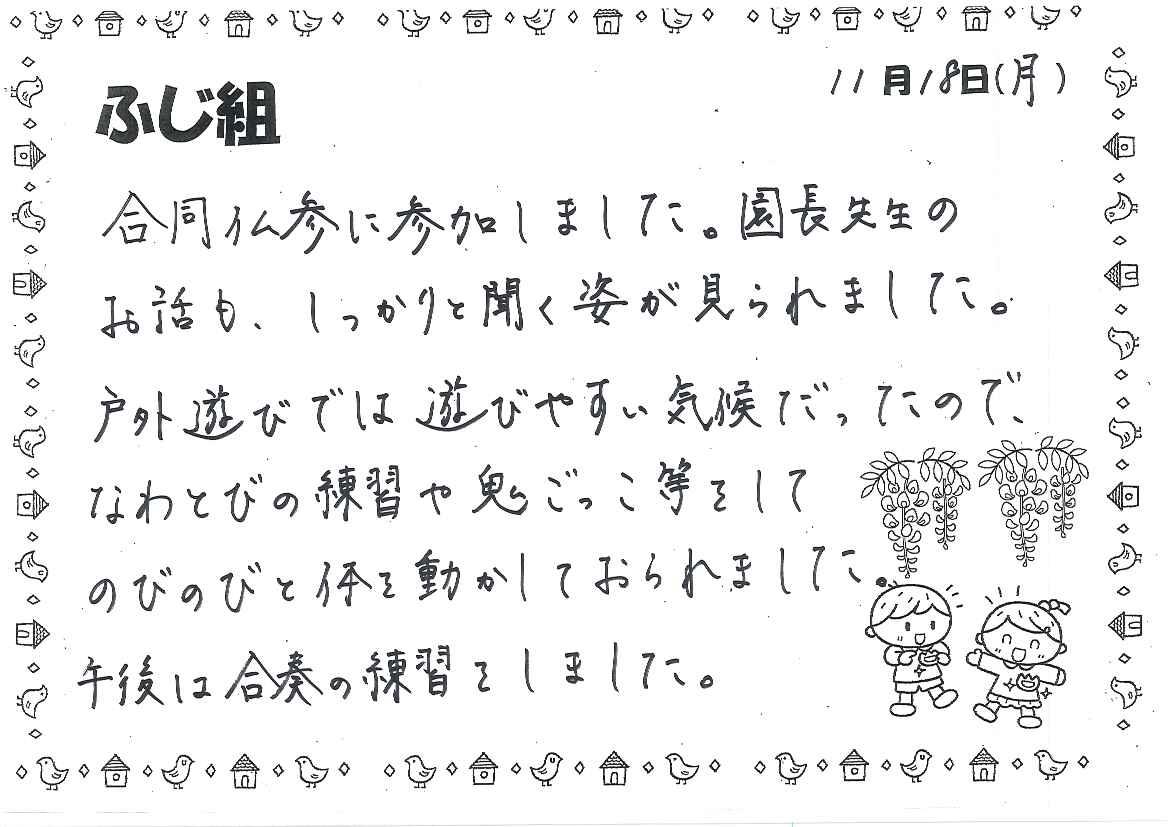 11月18日(月)
ふじ組
合同仏参に参加しました。園長先生の
お話も、しっかりと聞く姿が見られました。
戸外遊びでは遊びやすい気候だったので、
なわとびの練習や鬼ごっこ等をして
のびのびと体を動かしておられました。
午後は合奏の練習をしました。